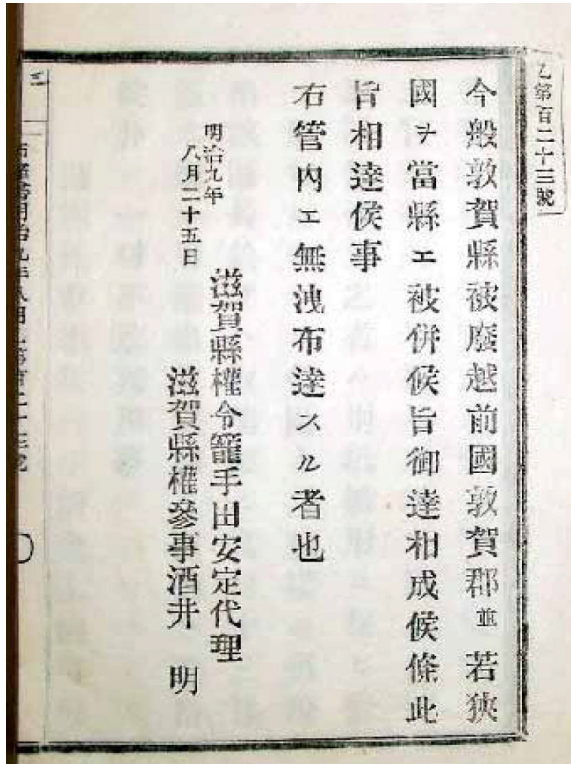 乙第百二十三號
今般敦賀縣被廢越前國敦賀郡並若狹
國ヲ當縣エ被併候旨御達相成候條此
旨相達侯事
右管內エ無洩布達スル者也
明治九年
八月二十五日
滋賀縣權令籠手田安定代理
滋賀縣權參事酒井 明